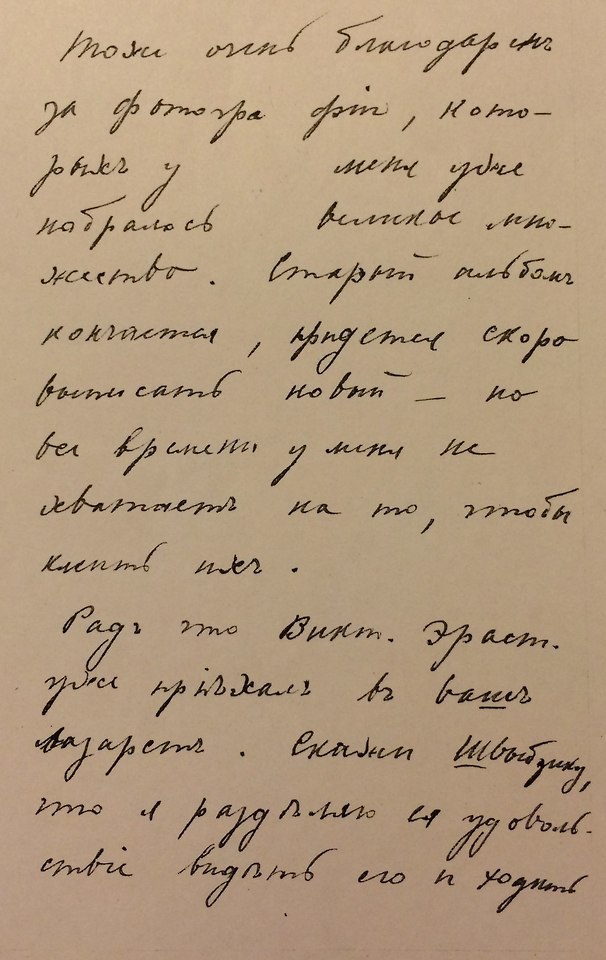 Тоже очень благодаренъ
за фотографiи, кото-
рыхъ у меня уже
набралось великое мно-
жество. Старый альбомъ
кончается, придется скоро
выписать новый — но
все времени у меня не
хватаетъ на то, чтобы
клеить ихъ.
Радъ что Викт. Эраст.
уже прiѣхалъ въ вашъ
лазаретъ. Скажи Швыбзику,
что я раздѣляю ея удоволь-
ствiе видѣть его и ходить